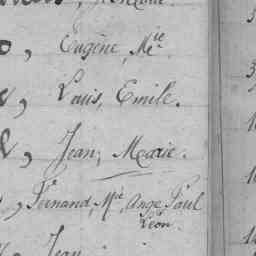 , Eugène, Mie
, Louis, Emile.
, Jean, Marie.
, Fernand, Mie, Ange Paul
Léon.
, Jean